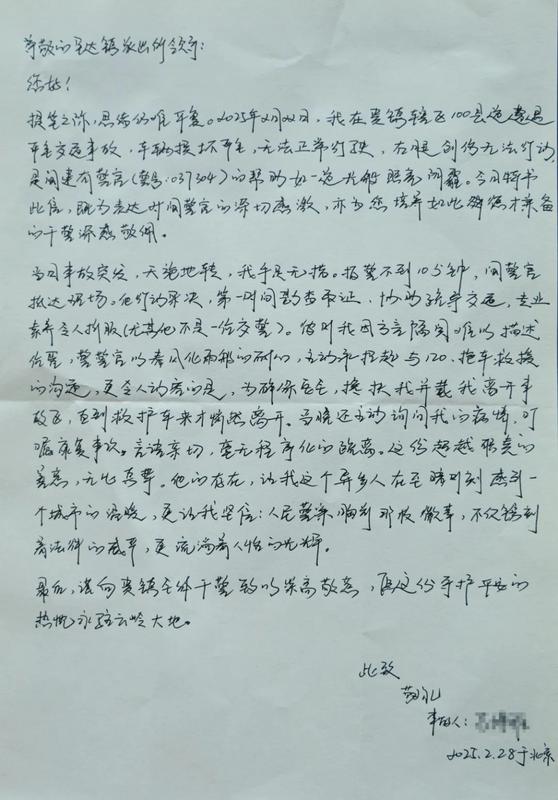 尊敬的贵达镇派出所领导：
您好！
提笔之际，思绪仍难平复。2025年2月22日，我在贵镇辖区100县道遭遇
严重交通事故，车辆损坏严重，无法正常行驶，右腿创伤无法行动
是闫建有警官（警号：037304）的帮助如一道光般照亮阴霾。今日特书
此信，既为表达对闫警官的深切感激，亦为您培养如此德才兼备
的干警深感敬佩。
当日事故突发，天旋地转，我手足无措。报警不到10分钟，闫警官
抵达现场。他行动果决，第一时间勘查取证，协助疏导交通，专业
素养令人折服（尤其他不是一位交警）。彼时我因方言隔阂难以描述
位置，闫警官以春风化雨般的耐心，主动承担起与120、拖车救援
的沟通，更令人动容的是，为确保安全，搀扶我并载我离开事
故区，直到救护车来才悄然离开。当晚还主动询问我的病情，叮
嘱康复事项。言语亲切，毫无程序化的疏离。这份超越职责的
善意，无比真挚。他的存在，让我这个异乡人在至暗时刻感到一
个城市的温暖，更让我坚信：人民警察胸前那枚徽章，不仅镌刻
着法律的威严，更流淌着人性的光辉。
最后，请向贵镇全体干警致以崇高敬意，愿这份守护平安的
热忱永驻云岭大地。
此致
敬礼
事故人：
2025.2.28于北京